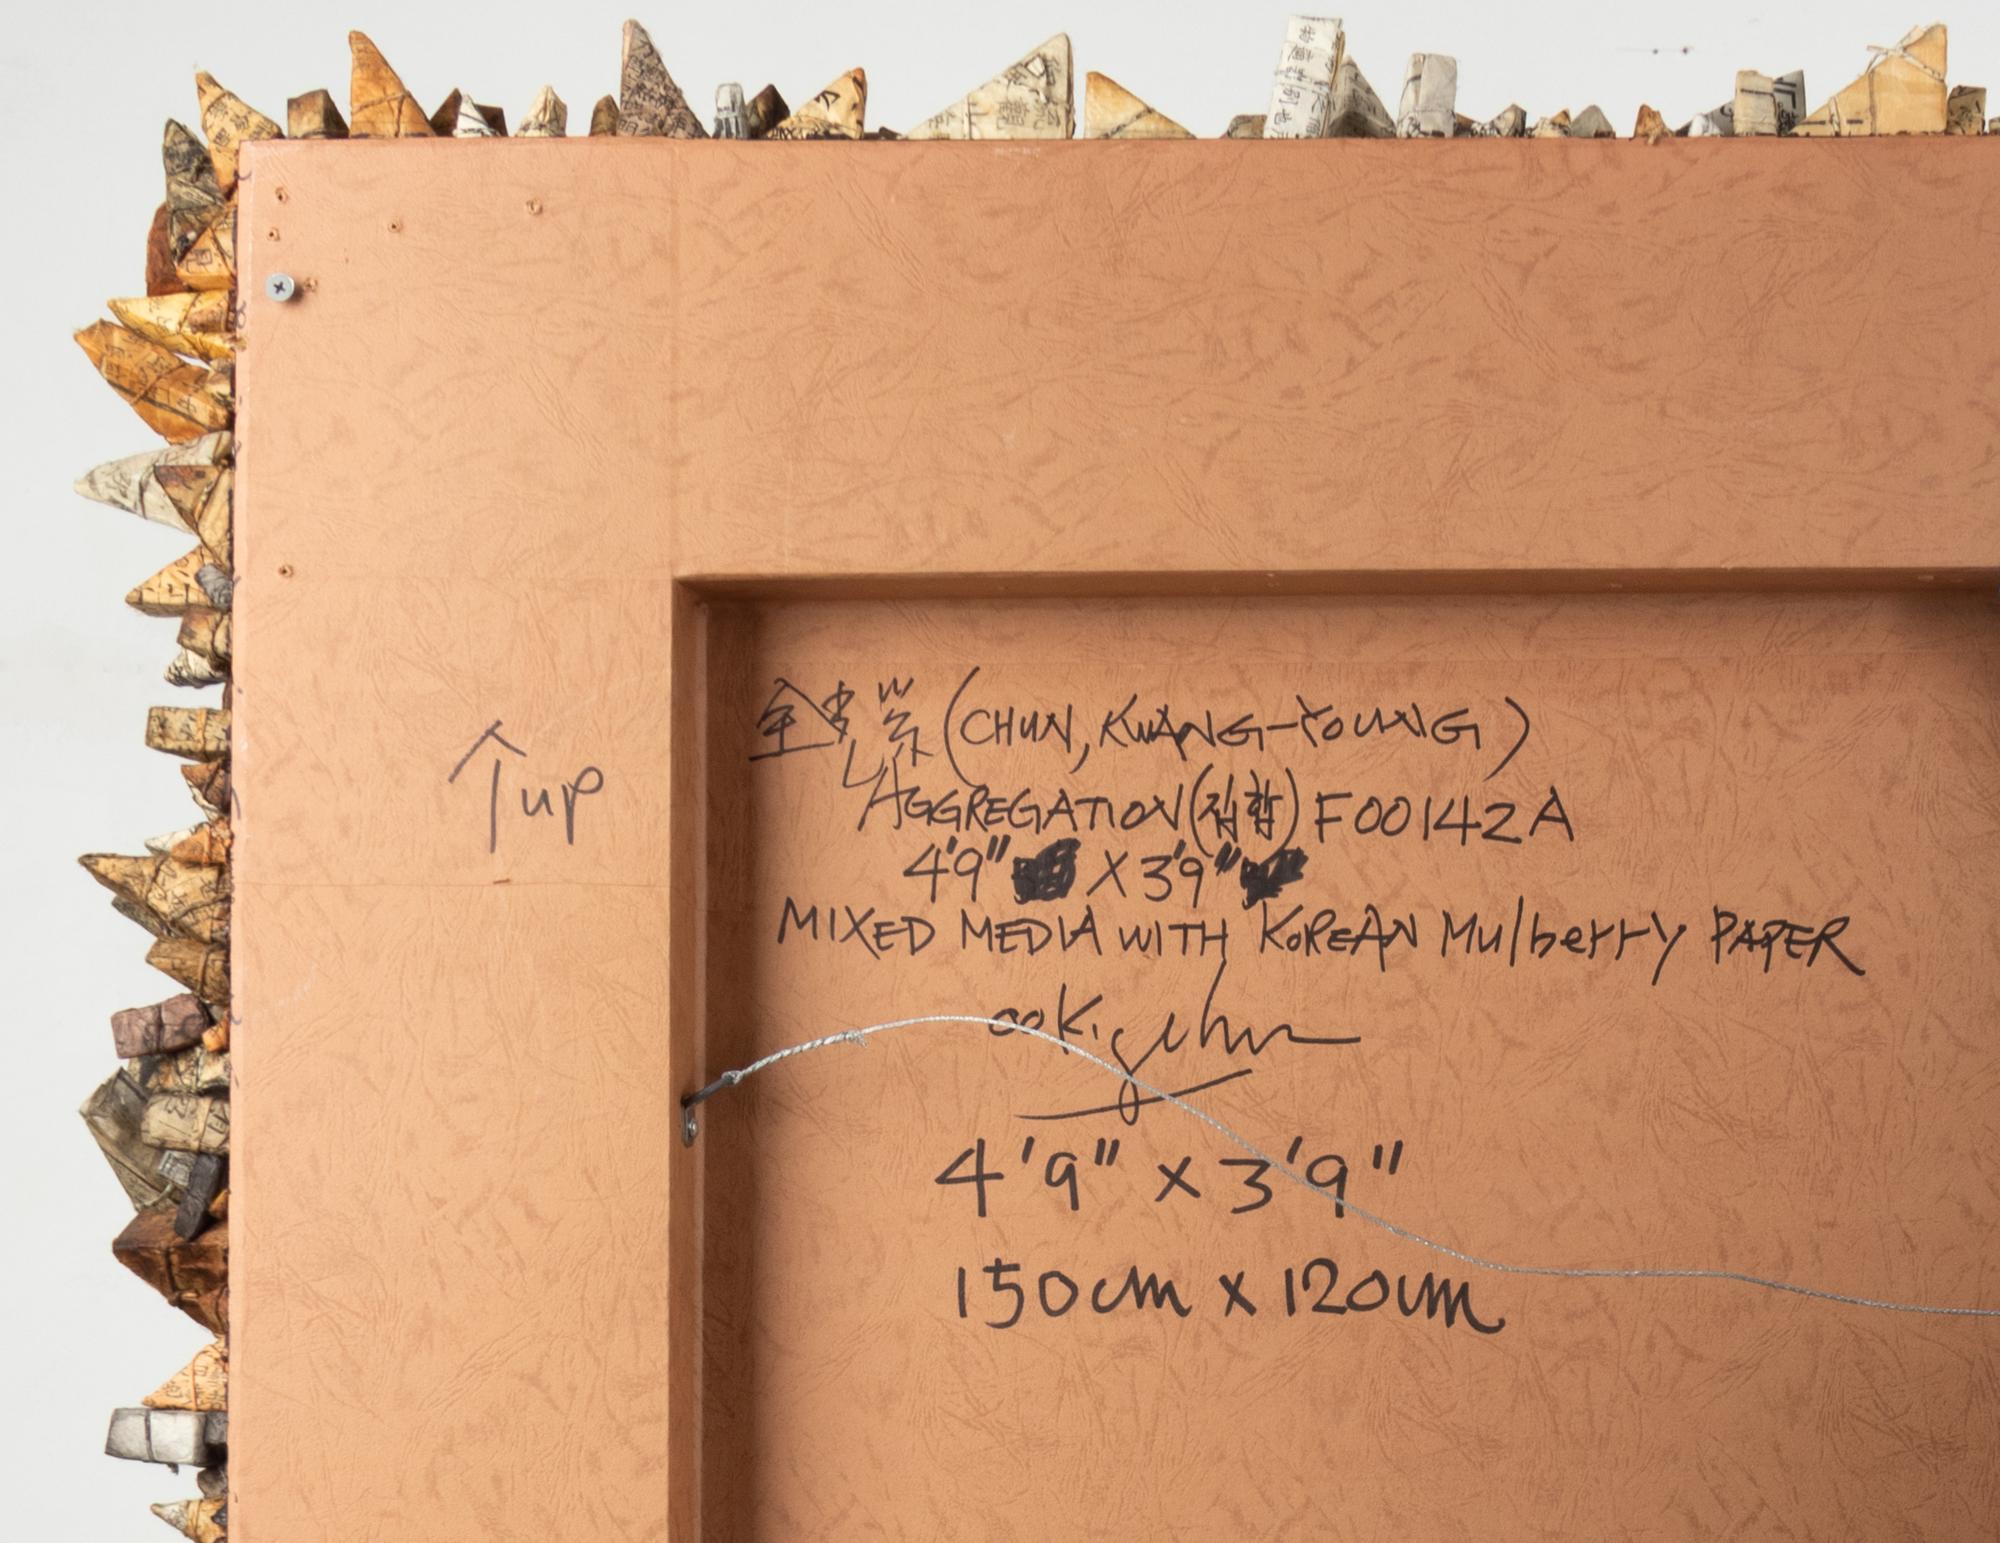 ↑up
全光榮 (CHUN, KWANG-YOUNG)
AGGREGATION (집합) F00142A
4'9" X 3'9"
MIXED MEDIA WITH KOREAN Mulberry PAPER
4'9" x 3'9"
150cm x 120cm